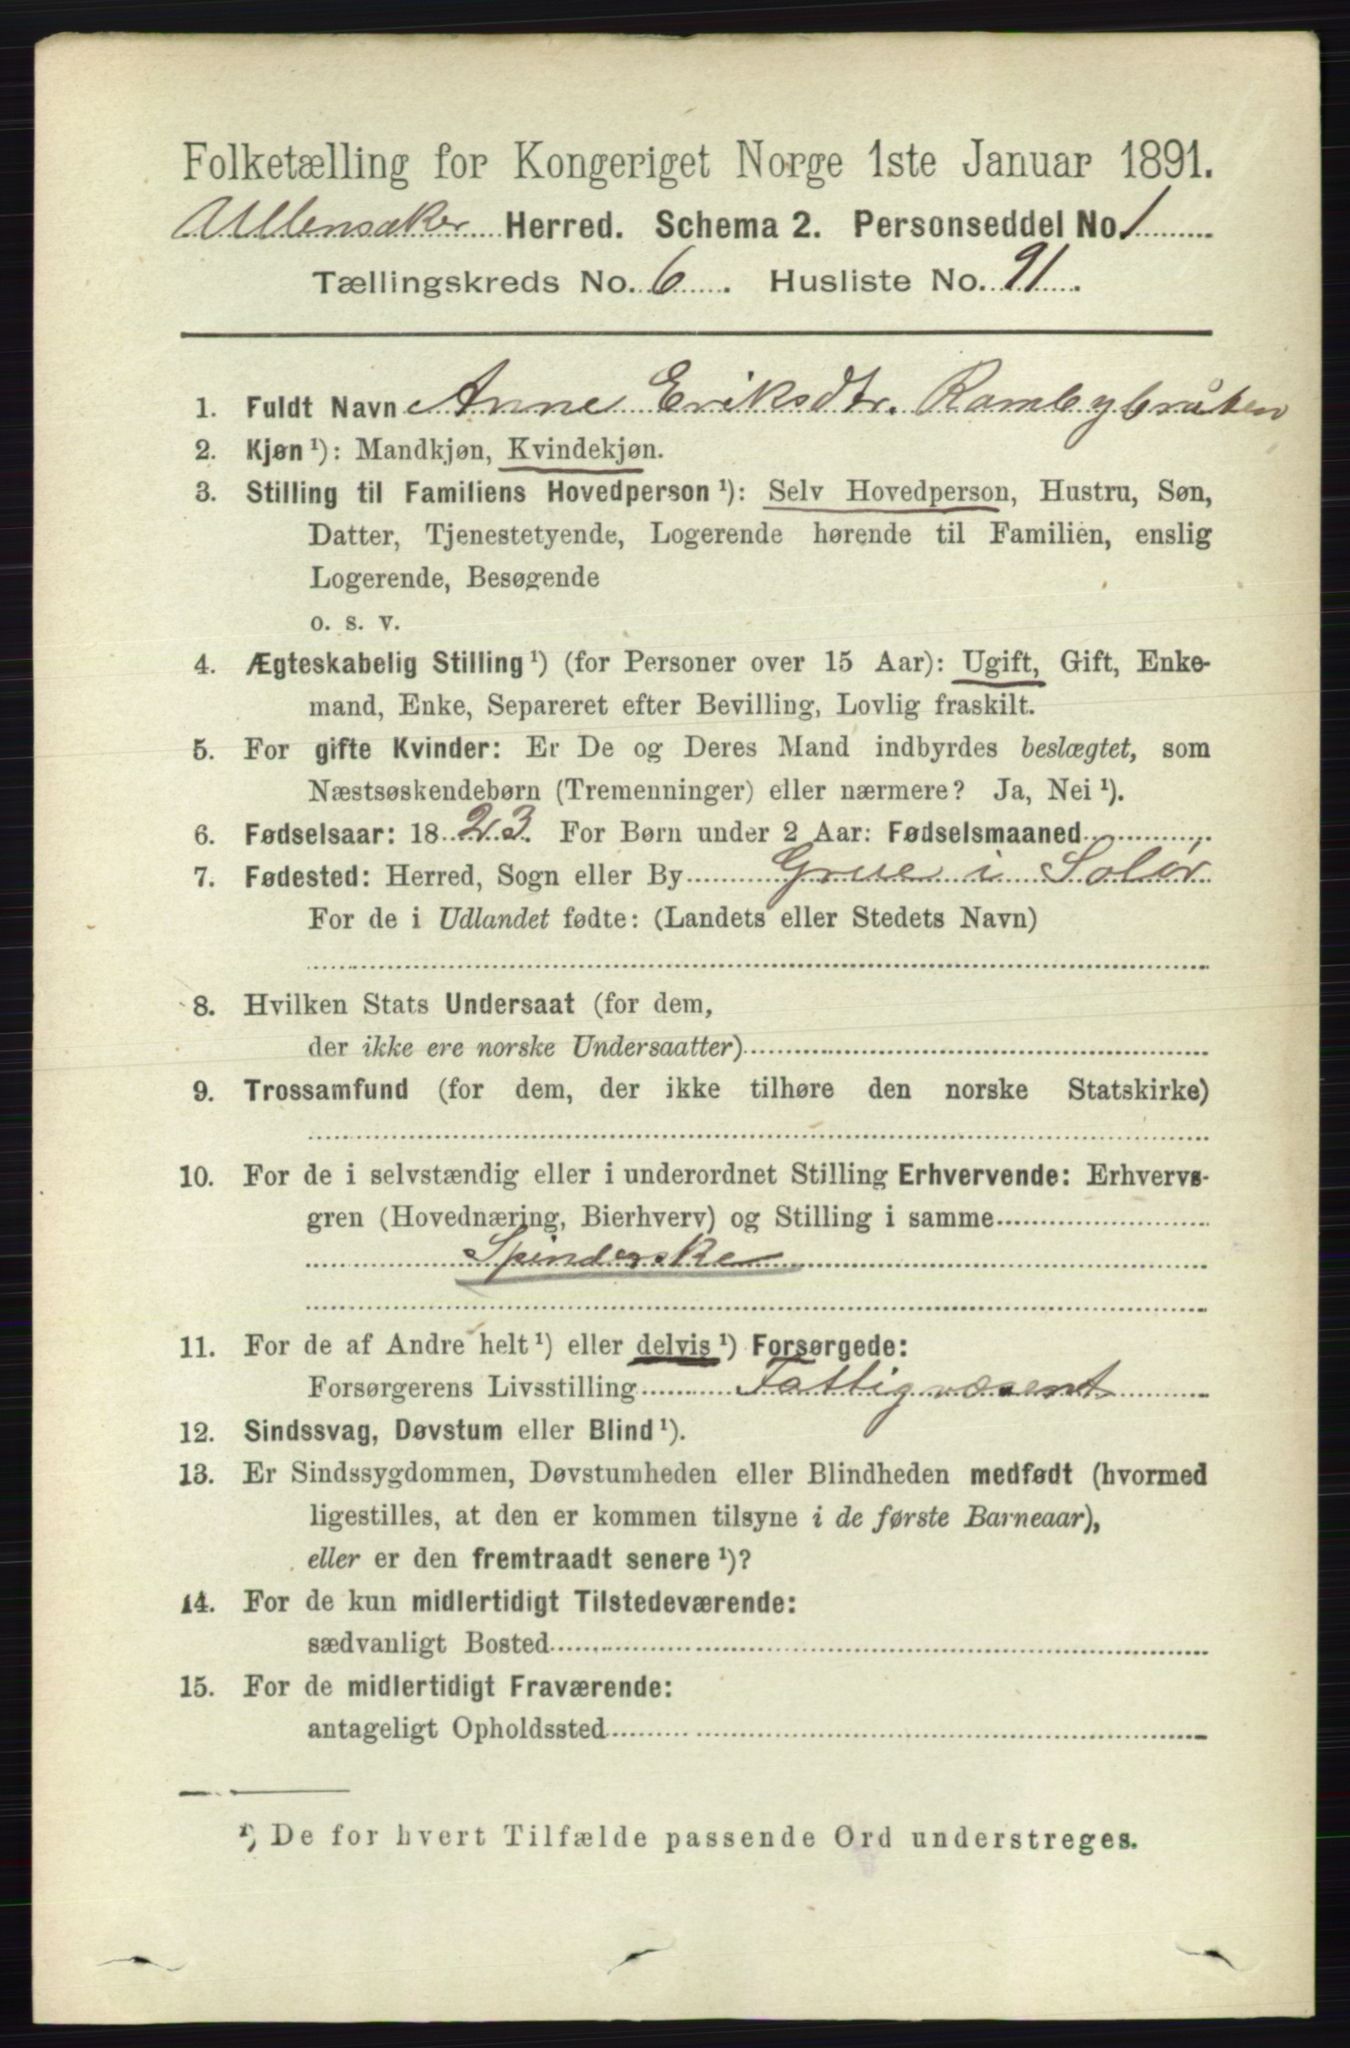 Folketælling for Kongeriget Norge 1ste Januar 1891.
Ullensaker Herred. Schema 2. Personseddel No. 1
Tællingskreds No. 6. Husliste No. 91.
1. Fuldt Navn Anne Eriksdtr. Rambybråten
2. Kjøn ¹): Mandkjøn, Kvindekjøn.
3. Stilling til Familiens Hovedperson ¹): Selv Hovedperson, Hustru, Søn,
Datter, Tjenestetyende, Logerende hørende til Familien, enslig
Logerende, Besøgende
o. s. v.
4. Ægteskabelig Stilling ¹) (for Personer over 15 Aar): Ugift, Gift, Enke-
mand, Enke, Separeret efter Bevilling, Lovlig fraskilt.
5. For gifte Kvinder: Er De og Deres Mand indbyrdes beslægtet, som
Næstsøskendebørn (Tremenninger) eller nærmere? Ja, Nei ¹).
6. Fødselsaar: 1823. For Børn under 2 Aar: Fødselsmaaned
7. Fødested: Herred, Sogn eller By Grue i Solør
For de i Udlandet fødte: (Landets eller Stedets Navn)
8. Hvilken Stats Undersaat (for dem,
der ikke ere norske Undersaatter)
9. Trossamfund (for dem, der ikke tilhøre den norske Statskirke)
10. For de i selvstændig eller i underordnet Stilling Erhvervende: Erhvervs-
gren (Hovednæring, Bierhverv) og Stilling i samme
Spinderske
11. For de af Andre helt ¹) eller delvis ¹) Forsørgede:
Forsørgerens Livsstilling Fattigvæsent
12. Sindssvag, Døvstum eller Blind ¹).
13. Er Sindssygdommen, Døvstumheden eller Blindheden medfødt (hvormed
ligestilles, at den er kommen tilsyne i de første Barneaar),
eller er den fremtraadt senere ¹)?
14. For de kun midlertidigt Tilstedeværende:
sædvanligt Bosted
15. For de midlertidigt Fraværende:
antageligt Opholdssted
¹) De for hvert Tilfælde passende Ord understreges.